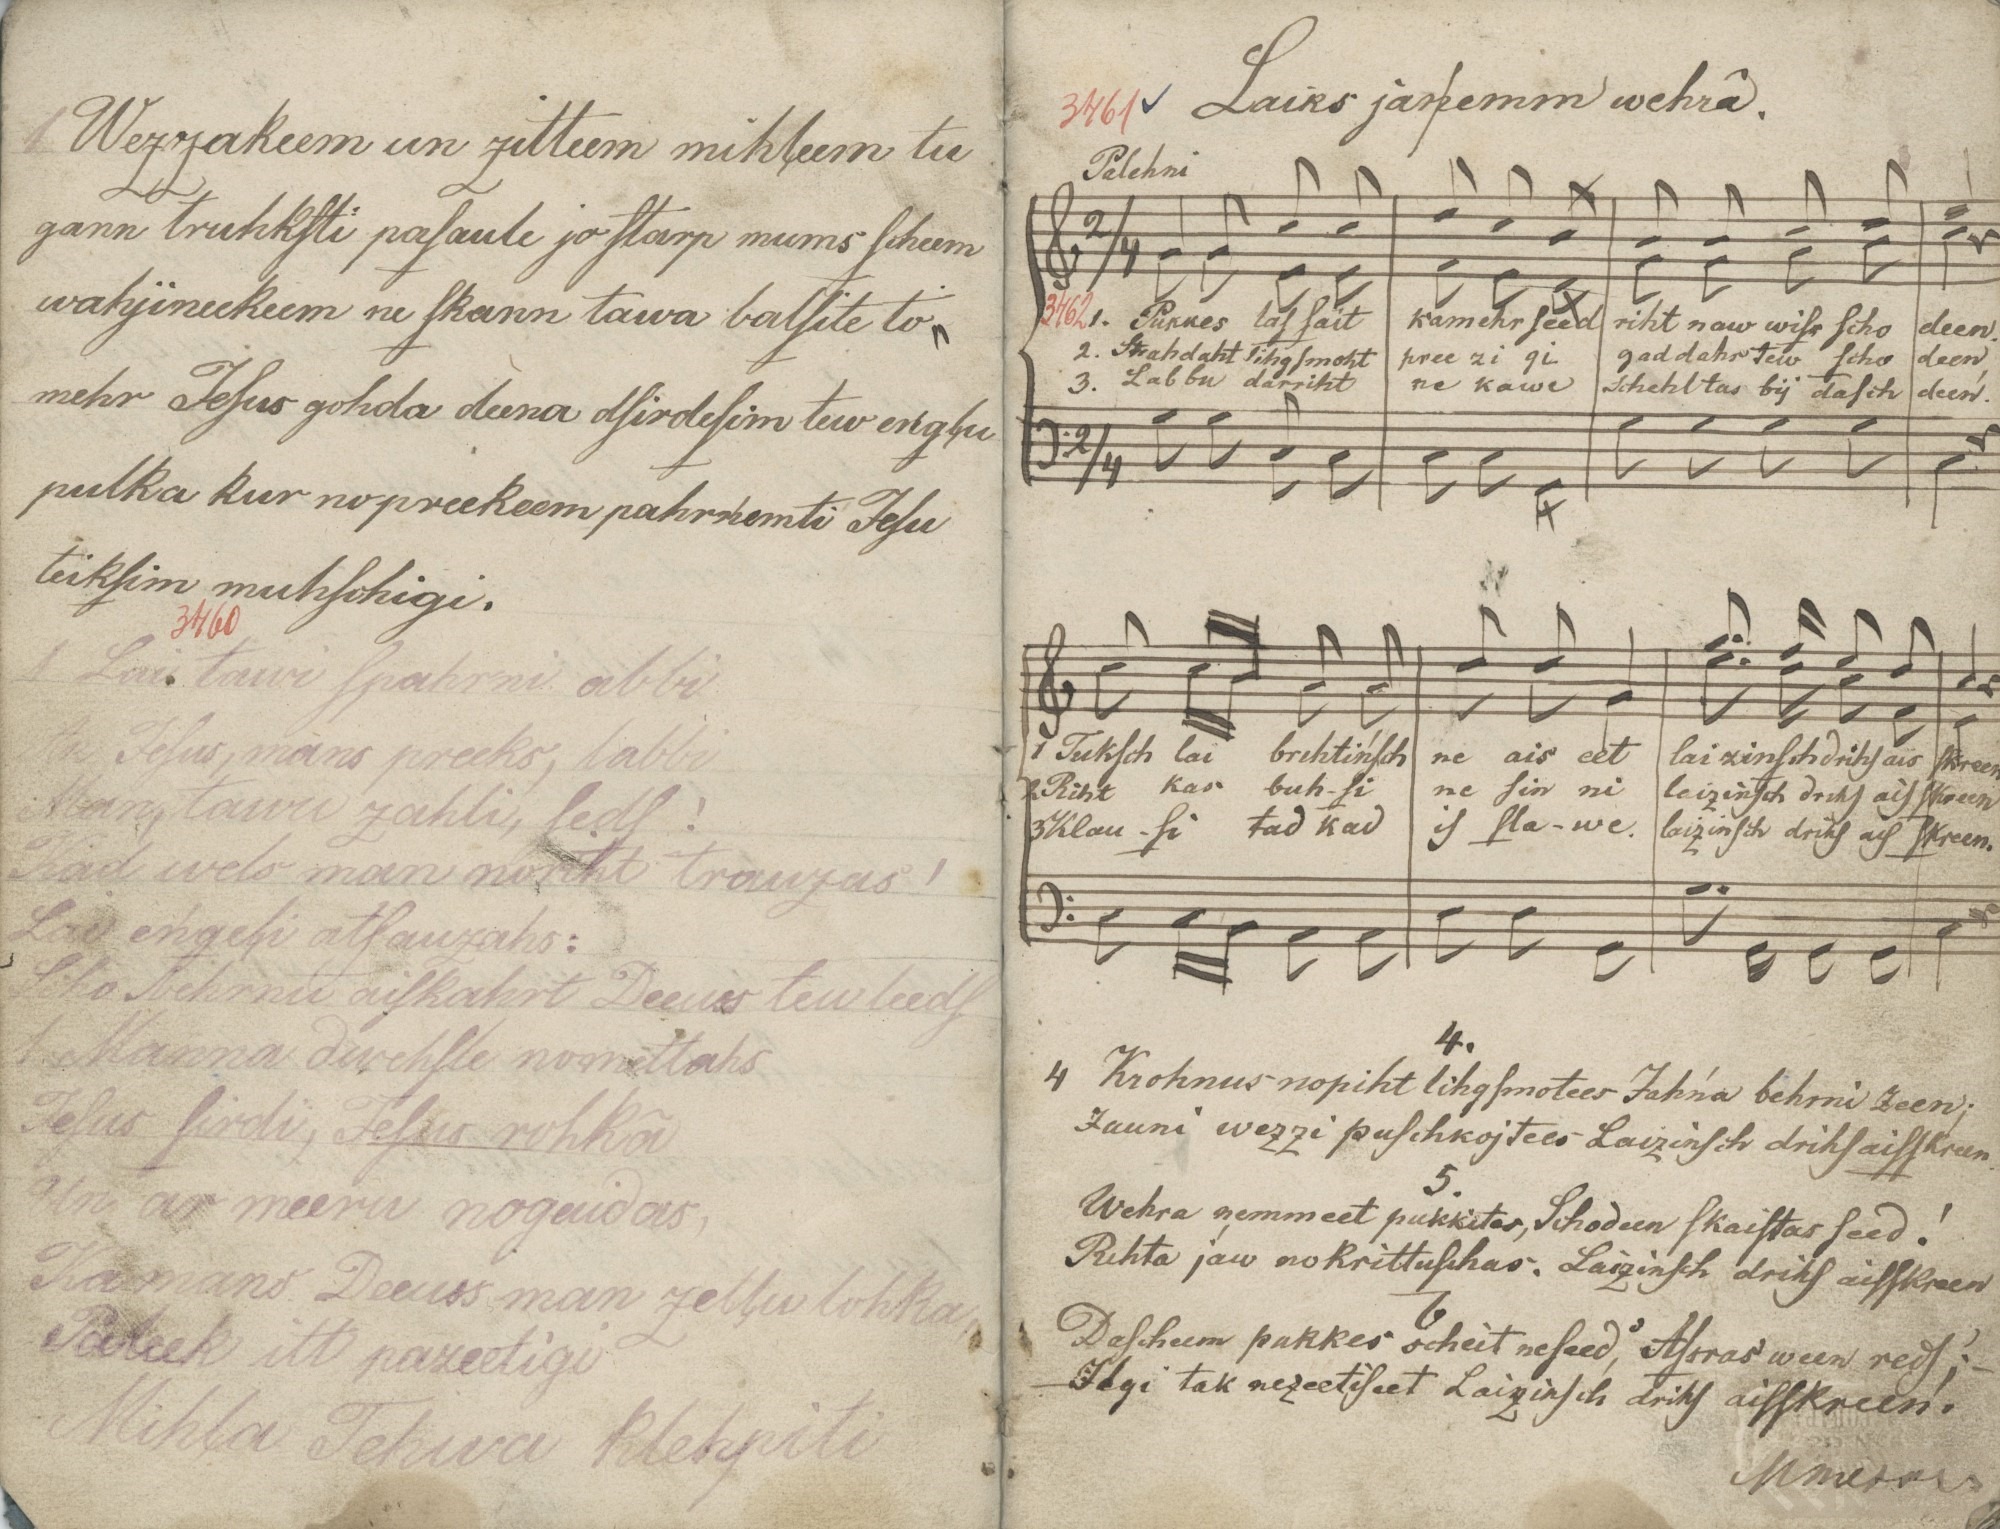 Wezzakeem un zitteem mihļeem tu
gann truhkſti paſaule jo ſtarp mums ſcheem
wahjineekeem ne ſkann tawa balſite to„
mehr Jeſus gohda deena dſirdeſim tew engļu
pulka kur no preekeem pahrņemti Jeſu
teikſim muhſchigi.
3460
1 Lai tawi ſpahrni abbi
Jeſus, mans preeks, labbi
Man, tawu zahli, ſedſ!
Kad wels man noriht trauzas!
Lai eņgeļi atſauzahs:
Scho behrnu aiſkahrt Deews teu leedſ
Manna dwehſle nomettahs
Jeſus ſirdi, Jeſus rohkâ
Un ar meeru nogaidas,
Ka mans Deewss man zeļļu lohka,
Paleek itt pazeetigi
Mihļa Tehwa klehpiti
3461 ✓ Laiks jaņemm wehrâ.
Palehni
2/4
3462 1. Pukkes laſ ſait kamehr ſeed riht naw wiſs ſcho deen.
2. Strahdaht lihgſmoht pree zi gi gad dahs tew ſcho deen,
3. Labbu darriht ne kawe ſchehl tas bij daſch deen.
2/4
1 Tukſch lai brihtiņſch ne ais eet laizinſch drihſ ais ſkreen
2 Riht kas buh-ſi ne ſin ni laizinſch drihſ aiſ ſkreen
3 Klau-ſi tad kad iſ ſla-we. laizinſch drihſ aiſ ſkreen.
4.
4 Krohnus nopiht lihgſmotees Jahņa behrni zeen;
Jauni wezzi puſchkojtees Laizinſch drihſ aiſſkreen.
5.
Wehra ņemmeet pukkites, Schodeen ſkaiſtas ſeed!
Rihta jaw nokrittuſchas. Laizinſch drihſ aiſſkreen
6
Daſcheem pukkes ſcheit neſeed, Aſsras ween redſ;–
Ilgi tak nezeetiſeet Laizinſch drihſ aiſſkreen.